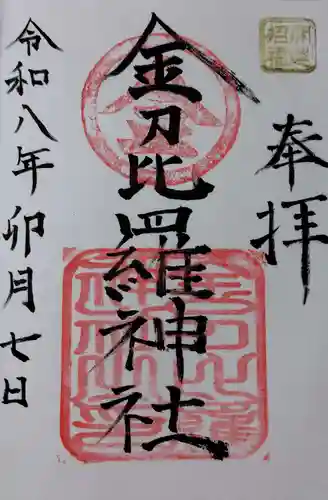 奉拝
金刀比羅神社
令和八年卯月七日